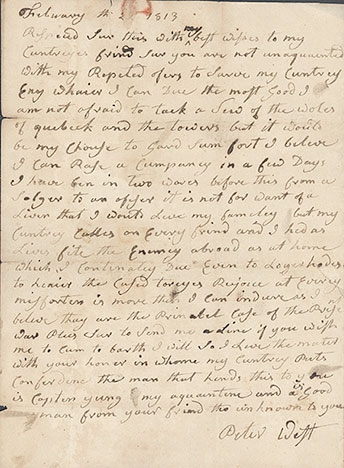 Febuary th 2 1813
Respeced Sur this with my best wishes to my
Cuntreyes frind Sur you are not unaquanted
With my Repeted ofers to Sarve my Cuntrey
Eny Whaier I can Due the most Good I
am not afraid to tack a Vew of the Woles
of quebeck and the towers but it Wouls
be my Chouse to Gard Sum fort I beleve
I can Rase a Cumpaney in a few Days
I have ben in two Wares before this from a
Solger to an ofiser it is not for Want of a
Liven that I Wouls Leve my fameley but my
Cuntrey Calles on Every frind and I had as
Leves fite the Enemey abroad as at home
Which I Contineley Due Even to
to heair the Cused toreyes Rejoice at Everey
misforten is more then I can indure as I
beleve thay are the Prinsabel Case of the
War Ples Sur to Send me a Line if you Wish
me to Cum to barth I will So I Leve the mater
With your honer in Whome my Cuntrey Puts
Confer dence the man that hends this to you
is Capten yung my aquantine and a Good
man from your friend tho unknown to you
Peter West